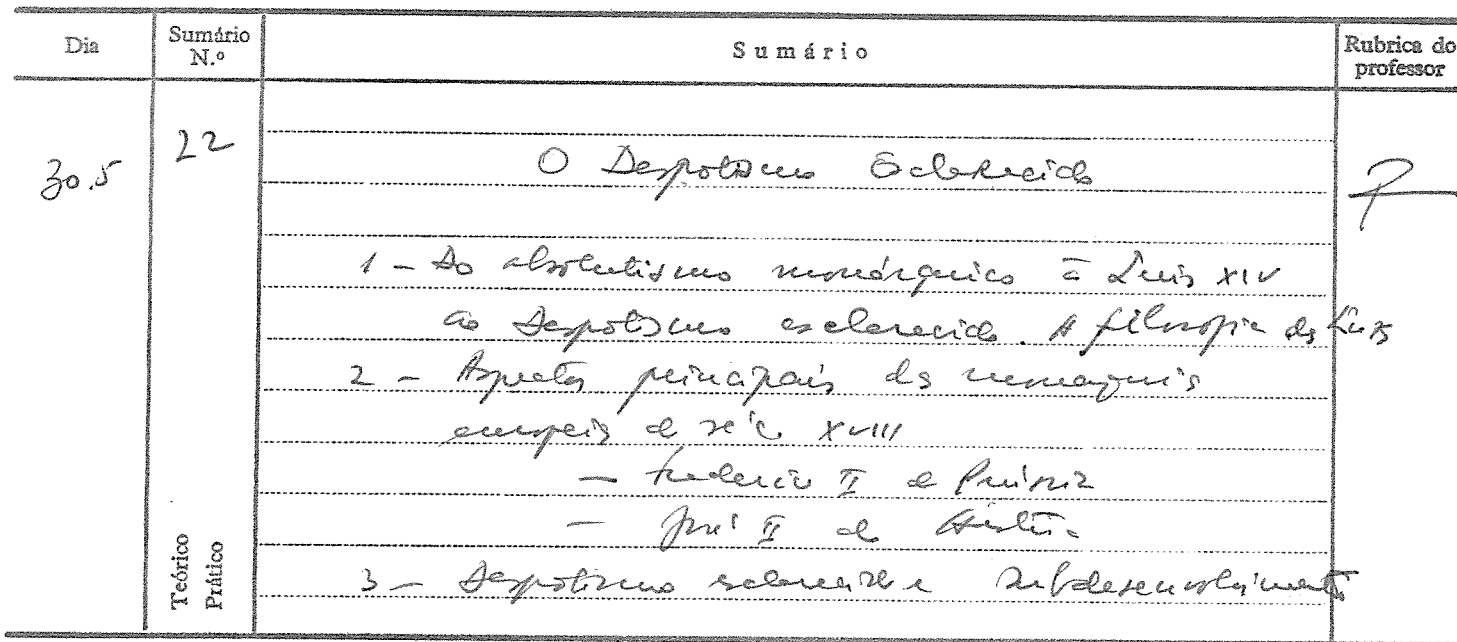 Dia
Sumário N.º
Sumário
Rubrica do professor
30.5
22
O Despotismo Esclarecido
1 - Do absolutismo monárquico de Luís XIV
ao Despotismo esclarecido. A filosofia das Luzes
2 - Aspectos principais das monarquias
europeias do séc. XVIII
- Frederico II da Prússia
- José II da Áustria
3 - Despotismo esclarecido e subdesenvolvimento
Teórico
Prático